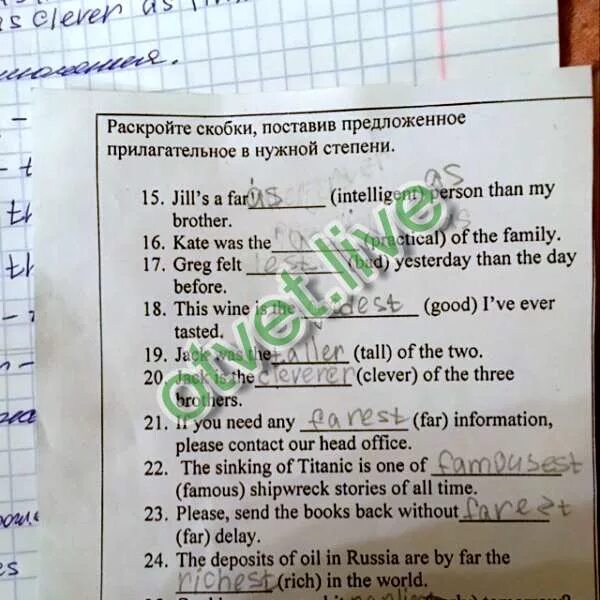 as clever as
Раскройте скобки, поставив предложенное
прилагательное в нужной степени.
15. Jill's a far as (intelligent) as person than my
brother.
16. Kate was the (practical) of the family.
17. Greg felt est (bad) yesterday than the day
before.
18. This wine is the dest (good) I've ever
tasted.
19. Jack was the taller (tall) of the two.
20. Jack is the cleverer (clever) of the three
brothers.
21. If you need any farest (far) information,
please contact our head office.
22. The sinking of Titanic is one of famousest
(famous) shipwreck stories of all time.
23. Please, send the books back without farest
(far) delay.
24. The deposits of oil in Russia are by far the
richest (rich) in the world.
otvet.live